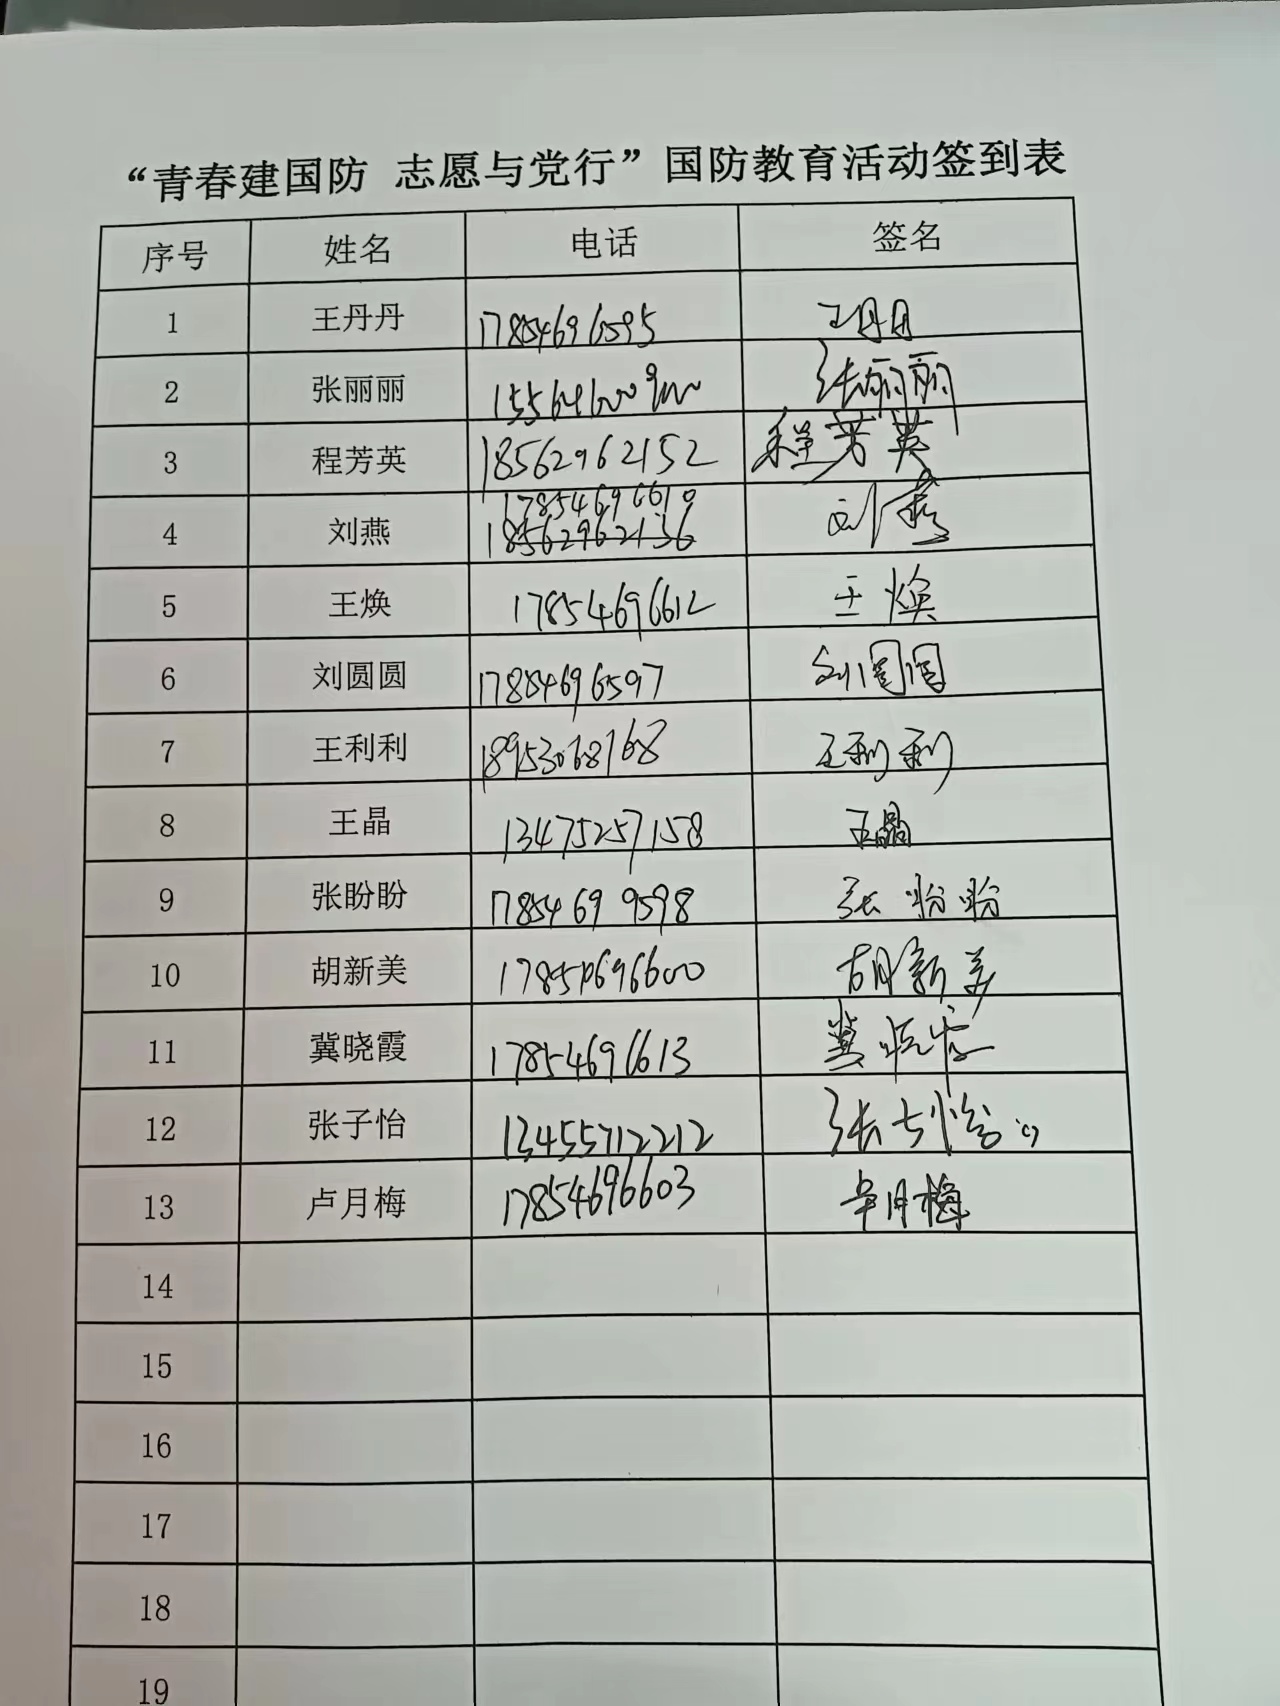 “青春建国防 志愿与党行”国防教育活动签到表
序号 姓名 电话 签名
1 王丹丹 17854696595 王丹丹
2 张丽丽 张丽丽
3 程芳英 18562962152 程芳英
17854696610
4 刘燕 18562962136 刘燕
5 王焕 17854696612 王焕
6 刘圆圆 17854696597 刘圆圆
7 王利利 18953068768 王利利
8 王晶 13475257158 王晶
9 张盼盼 1785469 9598 张盼盼
10 胡新美 胡新美
11 冀晓霞 17854696613 冀晓霞
12 张子怡 13455712212 张子怡
13 卢月梅 17854696603 卢月梅
14
15
16
17
18
19